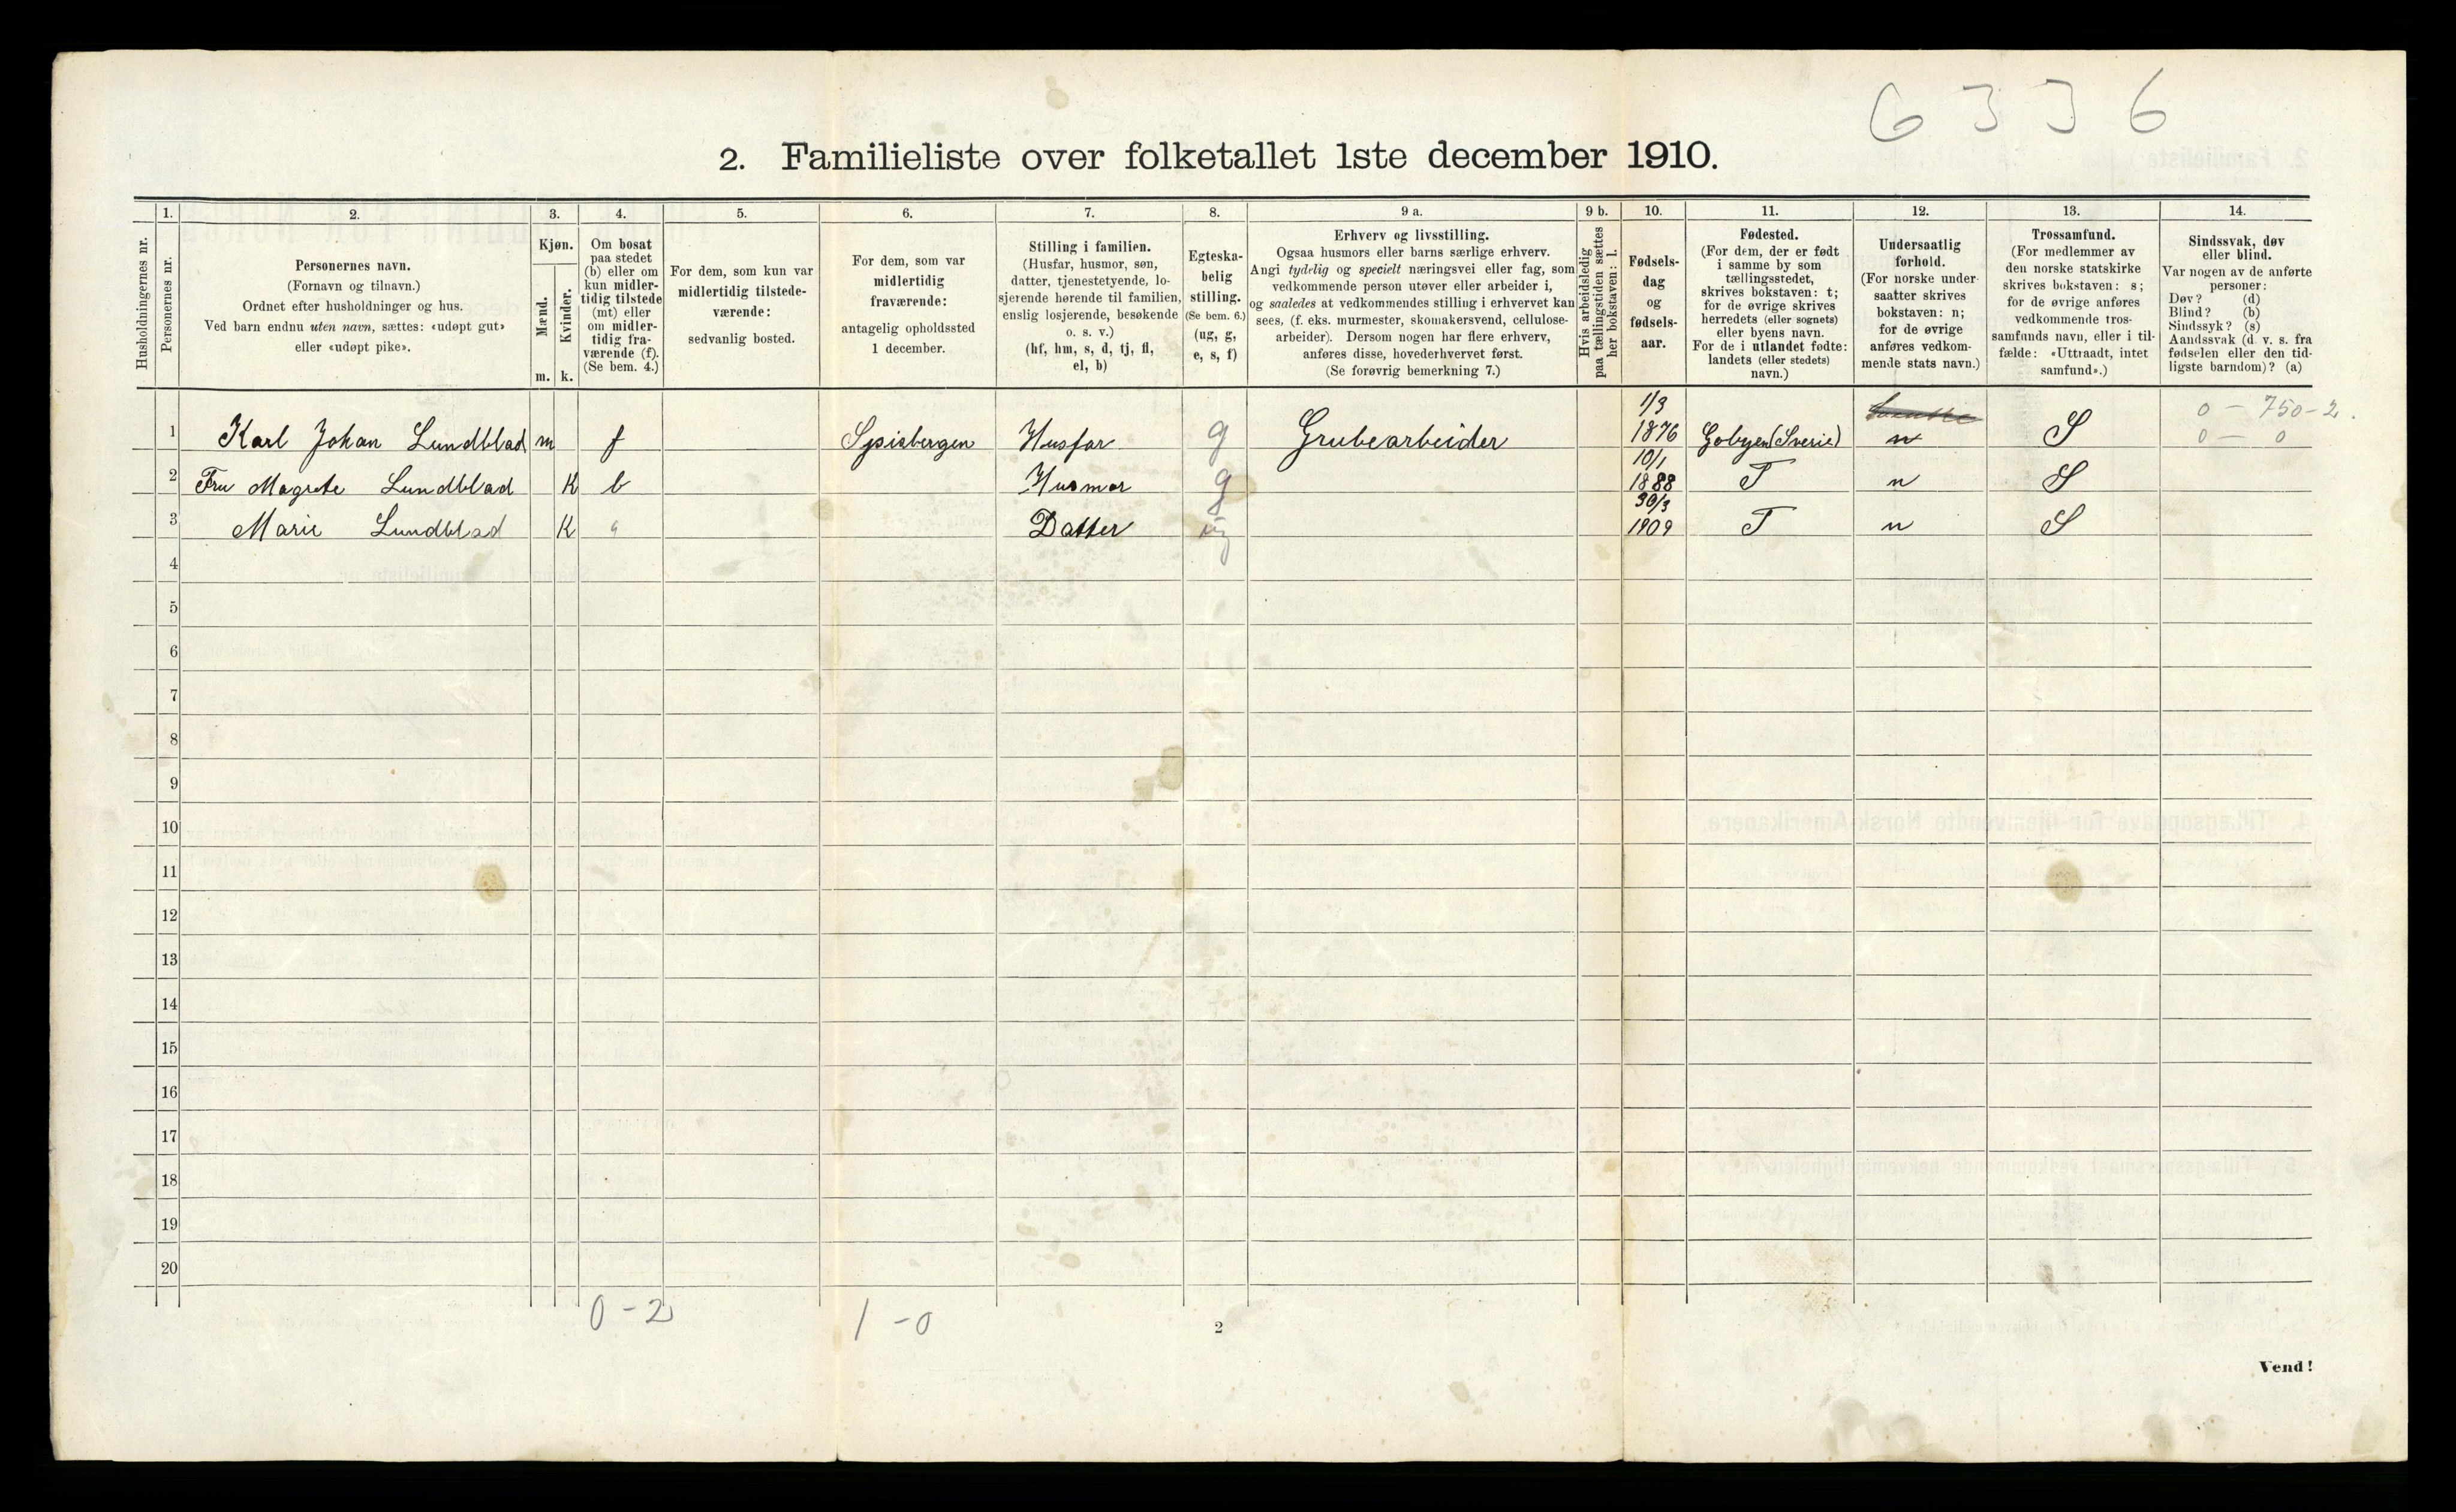 6 3 3 6
2. Familieliste over folketallet 1ste december 1910.
1. 2. 3. 4. 5. 6. 7. 8. 9 a. 9 b. 10. 11. 12. 13. 14.
Husholdningernes nr.
Personernes nr.
Personernes navn.
(Fornavn og tilnavn.)
Ordnet efter husholdninger og hus.
Ved barn endnu uten navn, sættes: «udøpt gut»
eller «udøpt pike».
Kjøn.
Mænd.
Kvinder.
m. k.
Om bosat
paa stedet
(b) eller om
kun midler-
tidig tilstede
(mt) eller
om midler-
tidig fra-
værende (f).
(Se bem. 4.)
For dem, som kun var
midlertidig tilstede-
værende:
sedvanlig bosted.
For dem, som var
midlertidig
fraværende:
antagelig opholdssted
1 december.
Stilling i familien.
(Husfar, husmor, søn,
datter, tjenestetyende, lo-
sjerende hørende til familien,
enslig losjerende, besøkende
o. s. v.)
(hf, hm, s, d, tj, fl,
el, b)
Egteska-
belig
stilling.
(Se bem. 6.)
(ug, g,
e, s, f)
Erhverv og livsstilling.
Ogsaa husmors eller barns særlige erhverv.
Angi tydelig og specielt næringsvei eller fag, som
vedkommende person utøver eller arbeider i,
og saaledes at vedkommendes stilling i erhvervet kan
sees, (f. eks. murmester, skomakersvend, cellulose-
arbeider). Dersom nogen har flere erhverv,
anføres disse, hovederhvervet først.
(Se forøvrig bemerkning 7.)
Hvis arbeidsledig
paa tællingstiden sættes
her bokstaven: l.
Fødsels-
dag
og
fødsels-
aar.
Fødested.
(For dem, der er født
i samme by som
tællingsstedet,
skrives bokstaven: t;
for de øvrige skrives
herredets (eller sognets)
eller byens navn.
For de i utlandet fødte:
landets (eller stedets)
navn.)
Undersaatlig
forhold.
(For norske under-
saatter skrives
bokstaven: n;
for de øvrige
anføres vedkom-
mende stats navn.)
Trossamfund.
(For medlemmer av
den norske statskirke
skrives bokstaven: s;
for de øvrige anføres
vedkommende tros-
samfunds navn, eller i til-
fælde: «Uttraadt, intet
samfund».)
Sindssvak, døv
eller blind.
Var nogen av de anførte
personer:
Døv? (d)
Blind? (b)
Sindssyk? (s)
Aandssvak (d. v. s. fra
fødselen eller den tid-
ligste barndom)? (a)
1 Karl Johan Lundblad m f Spisbergen Husfar g Grubearbeider 1/3 1876 Gobyen (Sverie) n S 0 - 750-2.
0 - 0
2 Fru Magrete Lundblad K b Husmor g 10/1 1888 T n S
3 Marie Lundblad K " Datter ug 30/3 1909 T n S
4
5
6
7
8
9
10
11
12
13
14
15
16
17
18
19
20
0 - 2 1 - 0
2
Vend!